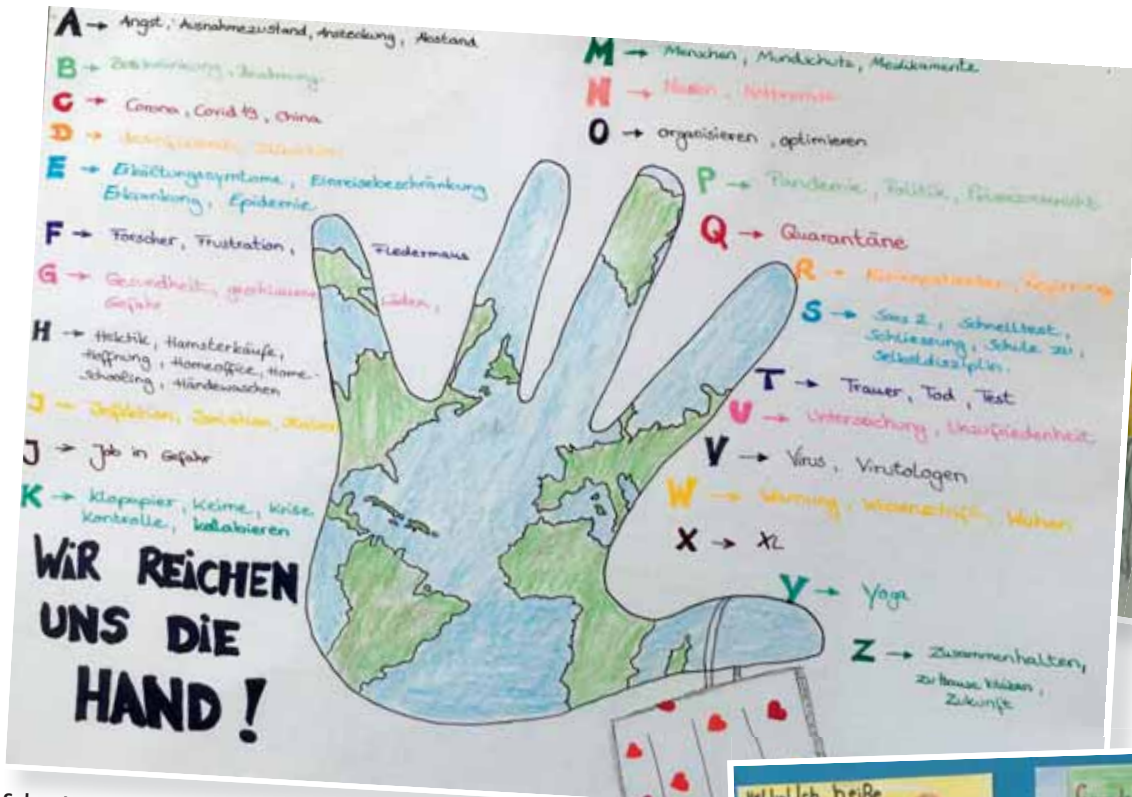 A → Angst, Ausnahmezustand, Ansteckung, Abstand
B →
C → Corona, Covid 19, China
D →
E → Erkältungssymtome, Einreisebeschränkung
Erkrankung, Epidemie
F → Forscher, Frustration, Fledermaus
G → Gesundheit, geschlossene Läden,
Gefahr
H → Hektik, Hamsterkäufe,
Hoffnung, Homeoffice, Home-
Schooling, Händewaschen
I → Infektion, Isolation, Italien
J → Job in Gefahr
K → Klopapier, Keime, Krise
Kontrolle, kollabieren
WiR REiCHEN
UNS DiE
HAND!
M → Menschen, Mundschutz, Medikamente
N → Nasen,
O → organisieren, optimieren
P → Pandemie, Politik, Präsenzunterricht
Q → Quarantäne
R → Risikopatienten, Regierung
S → Sars 2, Schnelltest,
Schliessung, Schule zu,
Selbstdisziplin.
T → Trauer, Tod, Test
U → Untersuchung, Unzufriedenheit
V → Virus, Virutologen
W → Warnung, Wissenschaft, Wuhan
X → XL
Y → Yoga
Z → Zusammenhalten,
zu Hause bleiben,
Zukunft
Hallo! Ich heiße